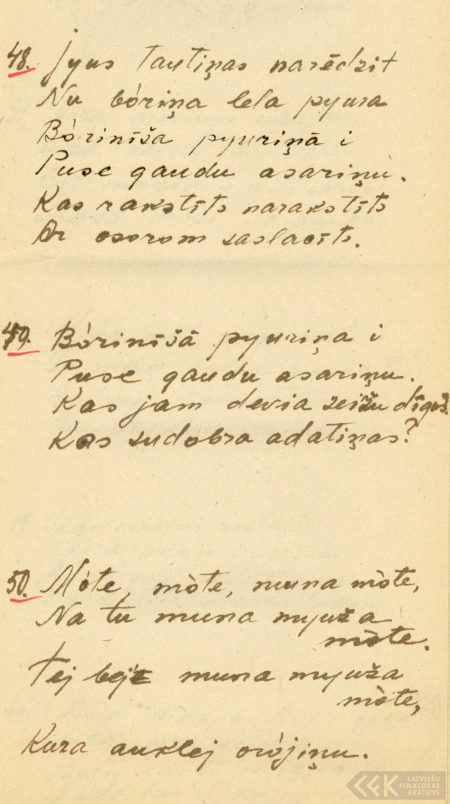 48. Jyus tautiņas naredzit
Nu bóriņa lela pyura
Bóriniša pyuriņā i
Puse gaudu asariņu.
Kas rakstīts narakstīts
Ar osorom saslacīts.
49. Bórinīšā pyuriņa i
Puse gaudu asariņu.
Kas jam devia zeižu dīgus.
Kas sudobra adatiņas?
50. Móte, móte, muna móte,
Na tu muna myuža
móte.
Tej beje muna myuža
móte,
Kura auklej ovójiņu.
LATVIEŠU
FOLKLORAS
KRĀTUVE